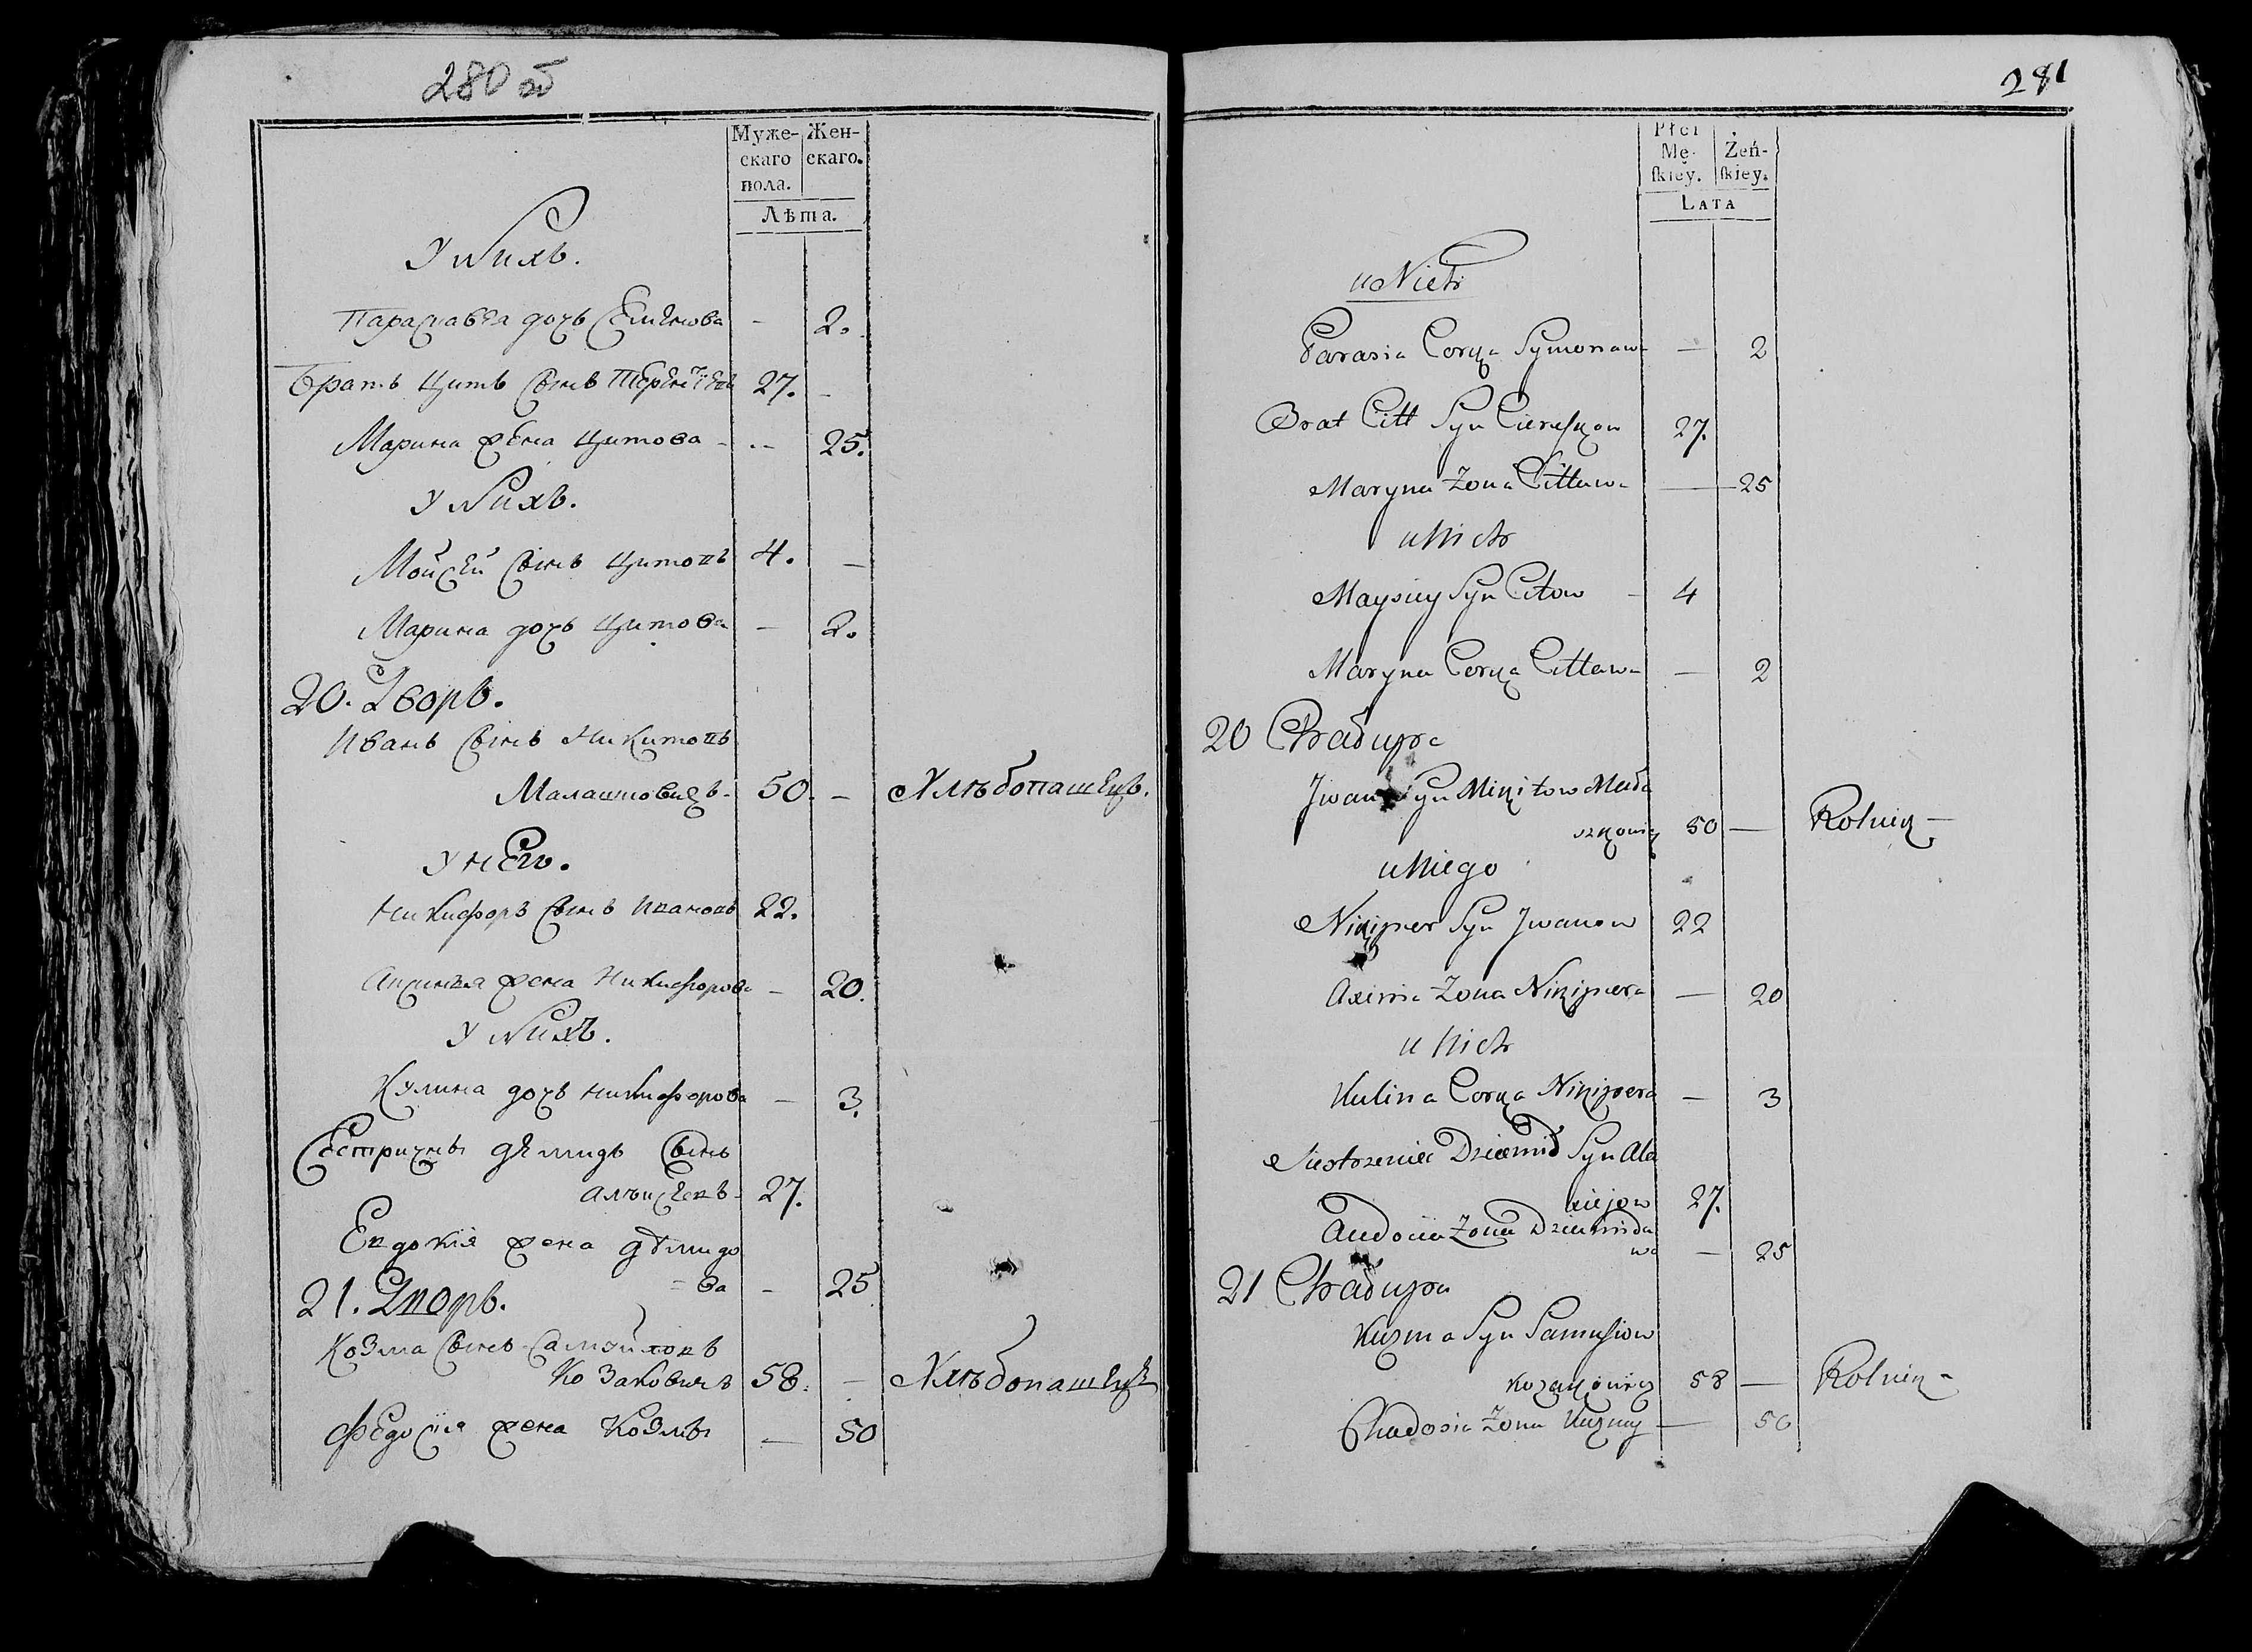 280 об
Муже- Жен-
скаго скаго.
пола.
Лѣта.
У Нихъ.
Параскавея дочь Семенова - 2.
Братъ Цитъ сынъ 27. -
Марина жена Цитова - -- 25.
У Нихъ.
Мойсей сынъ Цитовъ 4. -
Марина дочь Цитова - 2.
20. Дворъ.
Иванъ сынъ Никитовъ
50. - Хлѣбопашецъ.
У него.
Никифоръ сынъ Ивановъ 22.
жена Никифорова - 20.
У Нихъ.
Кулина дочь Никифорова - 3.
Демидъ сынъ
27.
Евдокія жена Демидо
=ва - 25
21. Дворъ.
Козма сынъ Самойловъ
Козаковичъ 58. - Хлѣбопашецъ
Федосія жена Козмы - 50
281
Płci
Mę- Żeń-
ſkiey. ſkiey.
LATA
u Nich
Parasia Corka Symonowa - 2
Brat Citt Syn 27.
Maryna Żona Cittowa - 25
u Nich
Maysiey Syn Citow - 4
Maryna Corka Cittowa - 2
20 Chałupa
Jwan Syn Mikitow
50 - Rolnik -
u Niego
Nikiper Syn Jwanow 22
Axinia Żona Nikipera - 20
u Nich
Kulina Corka Nikipera - 3
Siestrzeniec Dziemid Syn Ale
xiejow 27.
Audocia Żona Dziemida
wa - 25
21 Chałupa
Kuzma Syn Samusiow
Kozakowicz 58 - Rolnik -
Chadosia Żona Kuzmy - 50